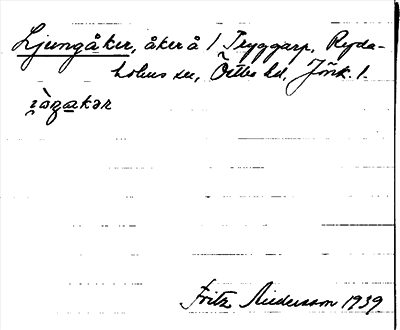 Ljungåker, åker å 1 Tryggarp, Ryda-
holms sn, Östbo hd, Jönk. l.
Fritz Andersson 1939